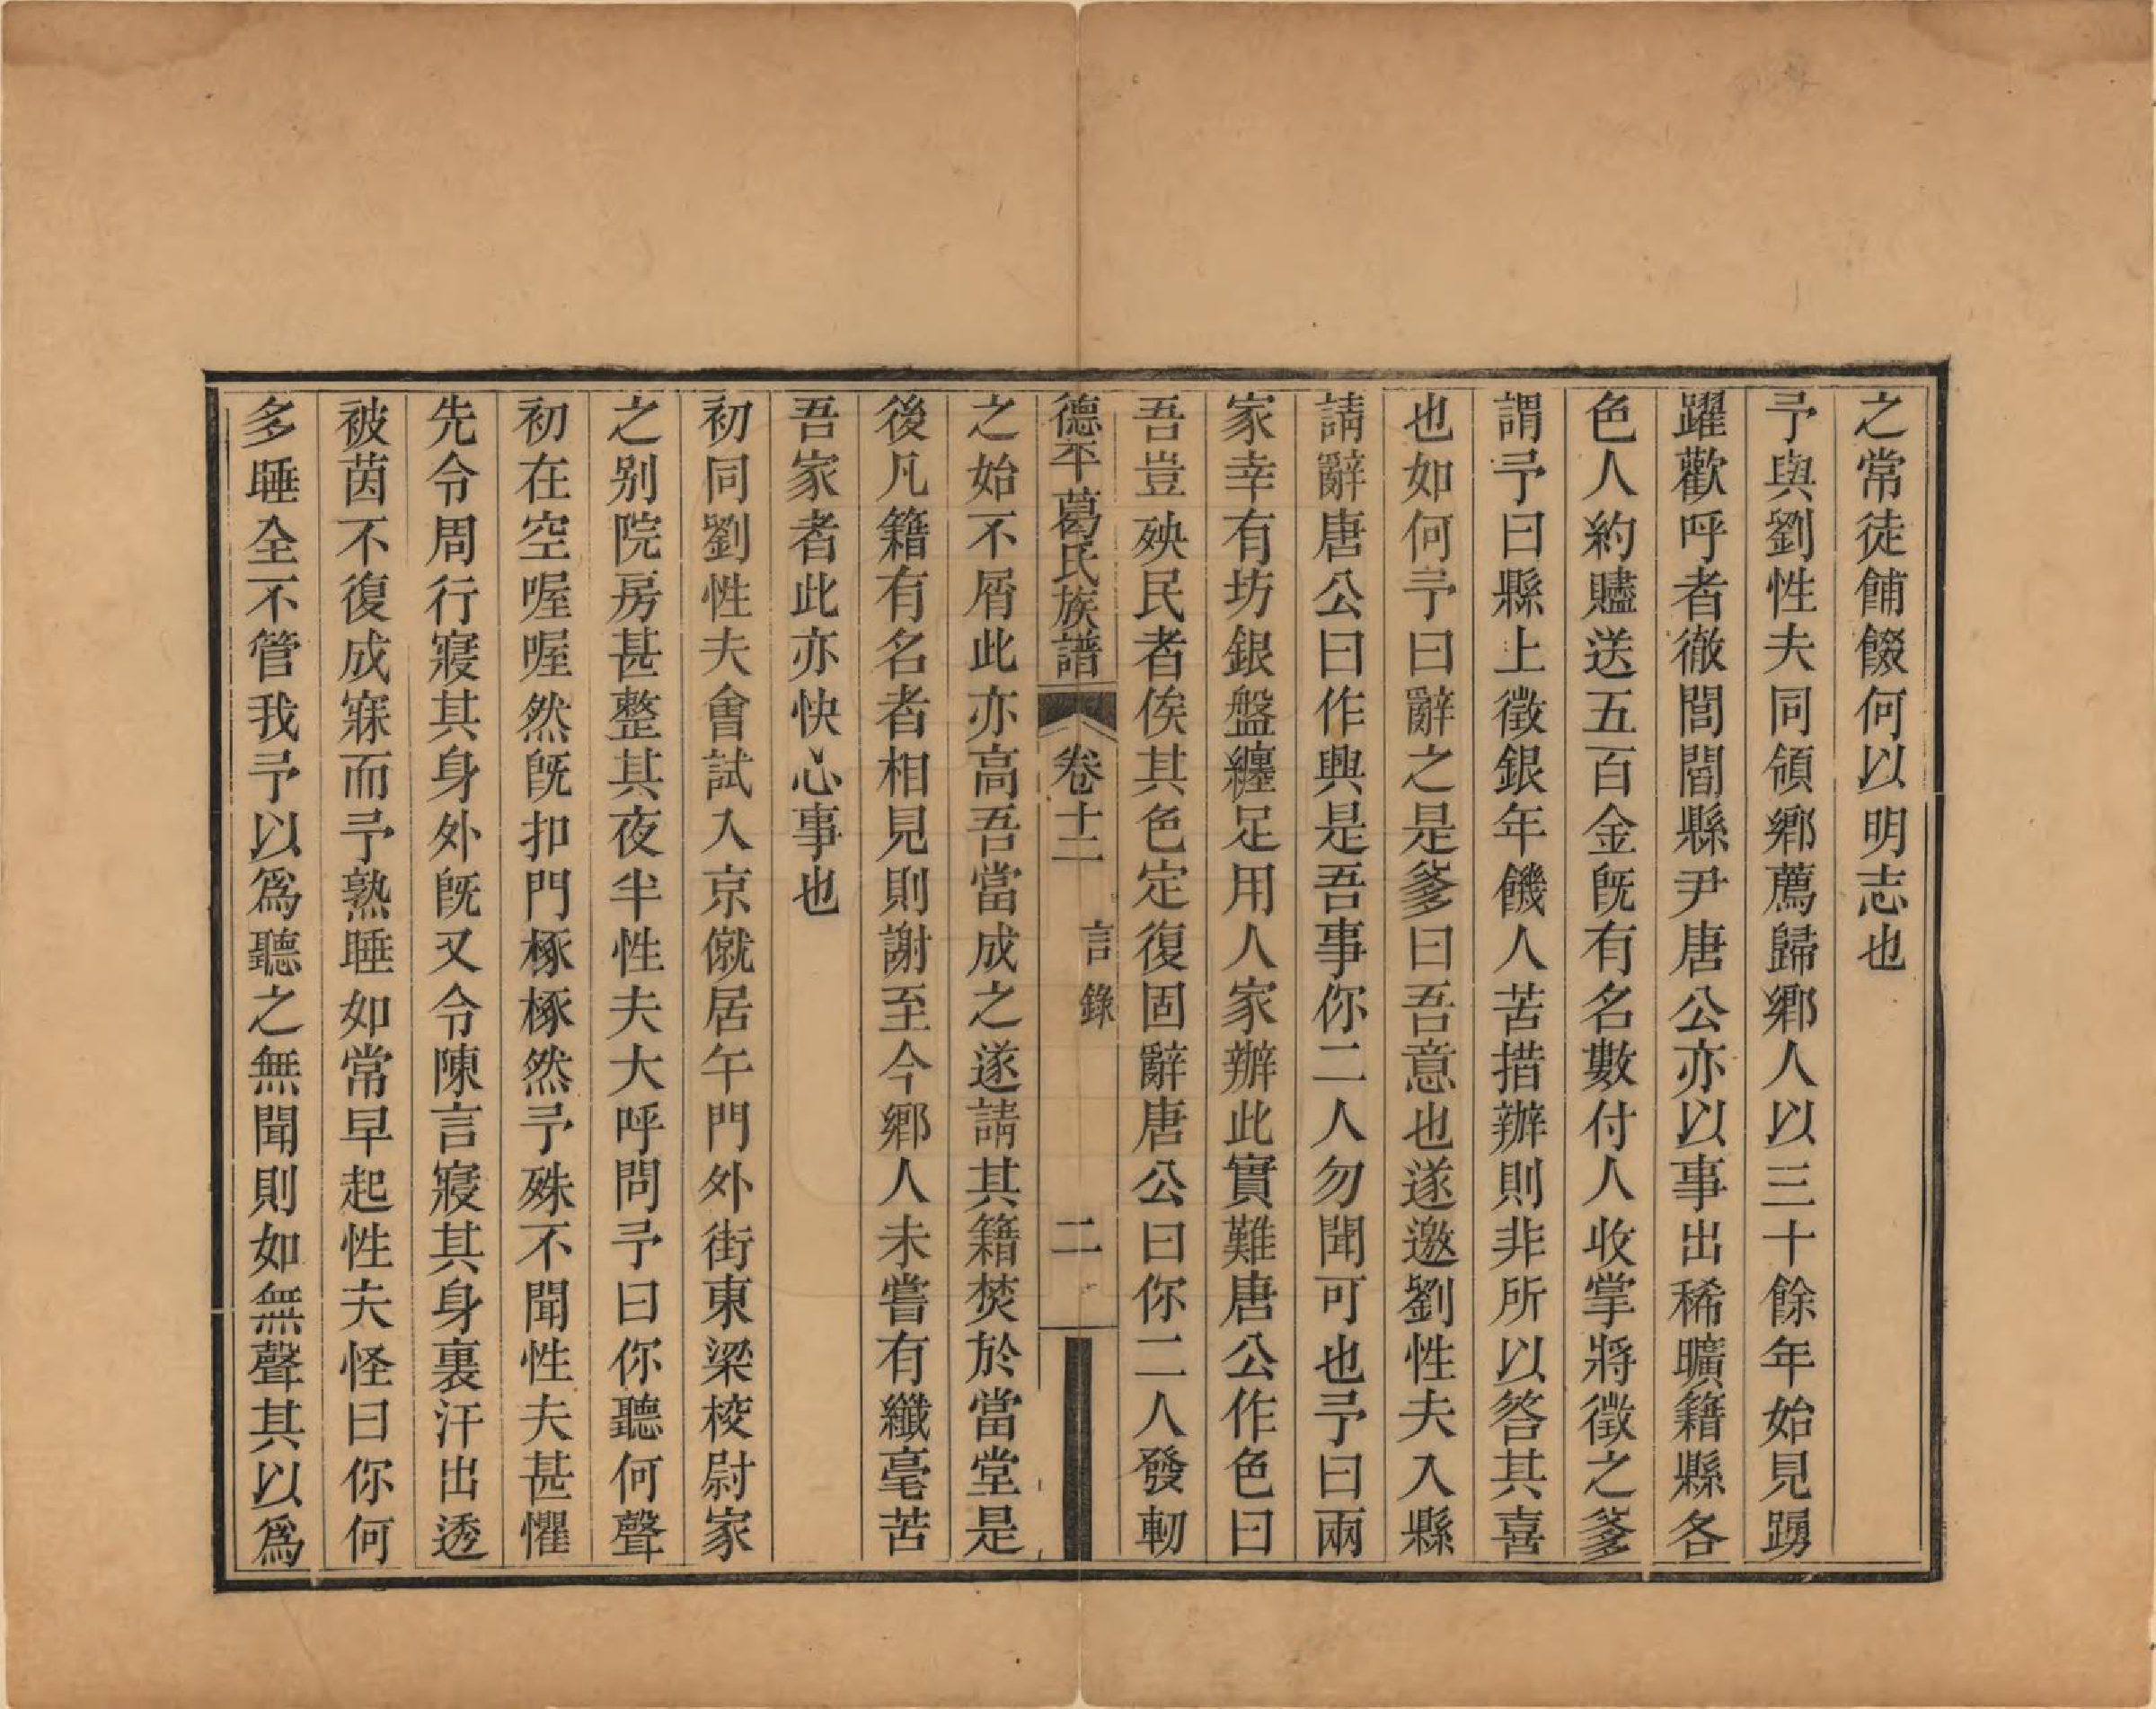 之常徒餔餟何以明志也
予與劉性夫同領鄉薦歸鄉人以三十餘年始見踴
躍歡呼者徹閭閻縣尹唐公亦以事出稀曠籍縣各
色人約贐送五百金旣有名數付人收掌將徵之爹
謂予曰縣上徵銀年饑人苦措辦則非所以答其喜
也如何予曰辭之是爹曰吾意也遂邀劉性夫入縣
請辭唐公曰作興是吾事你二人勿聞可也予曰兩
家幸有坊銀盤纏足用人家辦此實難唐公作色曰
吾豈殃民者俟其色定復固辭唐公曰你二人發軔
德平葛氏族譜 卷十二 言錄 二
之始不屑此亦高吾當成之遂請其籍焚於當堂是
後凡籍有名者相見則謝至今鄉人未嘗有纖毫苦
吾家者此亦快心事也
初同劉性夫會試入京僦居午門外街東梁校尉家
之别院房甚整其夜半性夫大呼問予曰你聽何聲
初在空喔喔然旣扣門椓椓然予殊不聞性夫甚懼
先令周行寢其身外旣又令陳言寢其身裏汗出透
被茵不復成寐而予熟睡如常早起性夫怪曰你何
多睡全不管我予以爲聽之無聞則如無聲其以爲